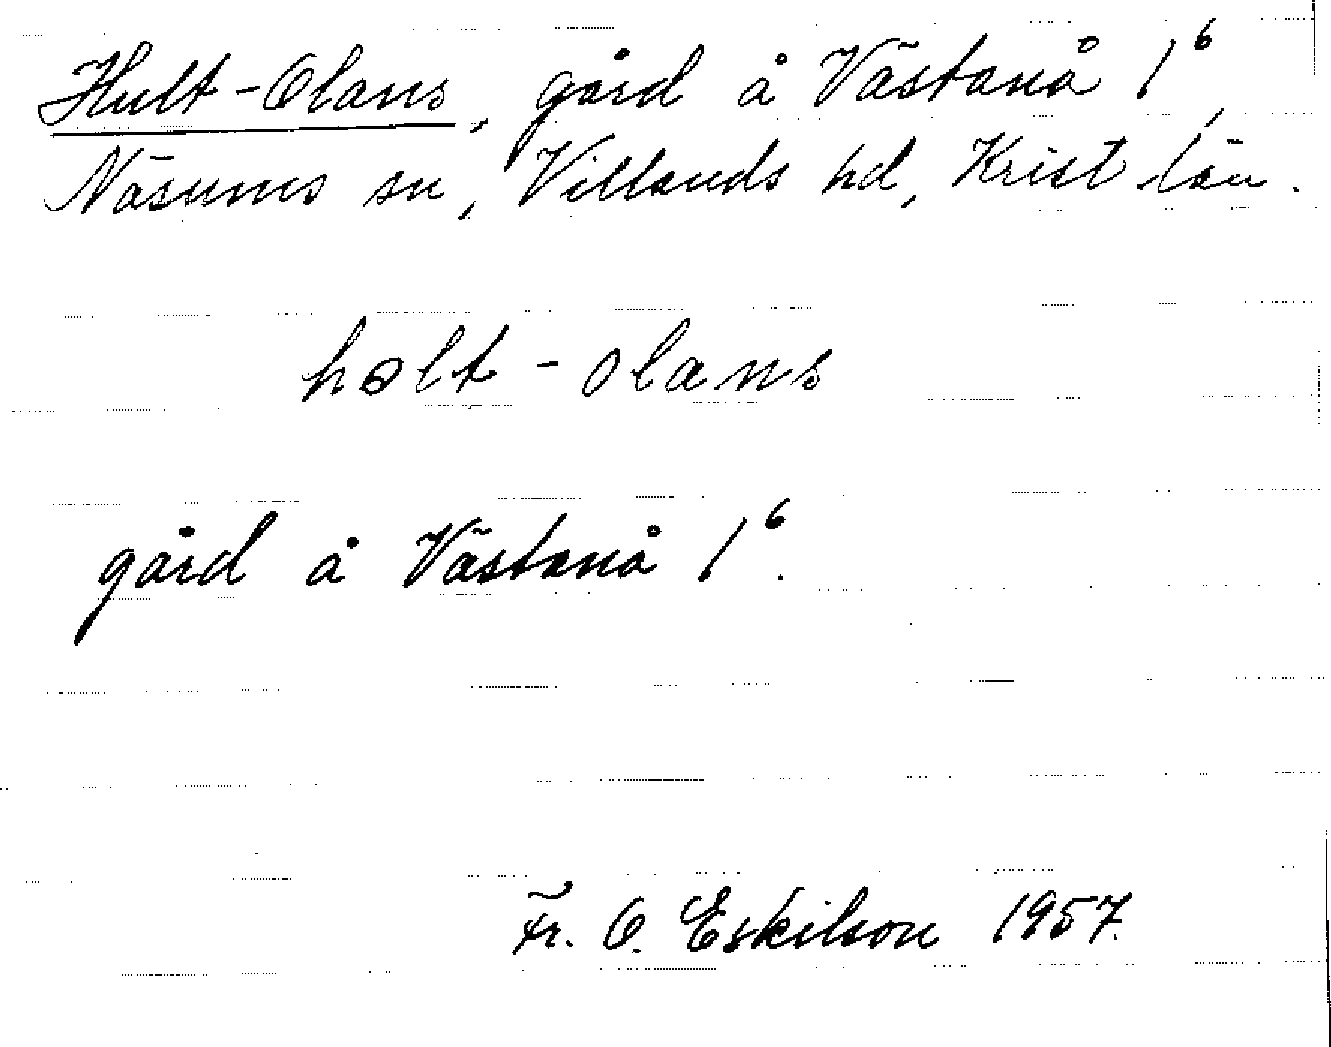 Hult-Olans, gård å Västanå 1⁶,
Näsums sn, Villands hd, Krist län.
holt - olans
gård å Västanå 1⁶.
Fr. O. Eskilson 1957.